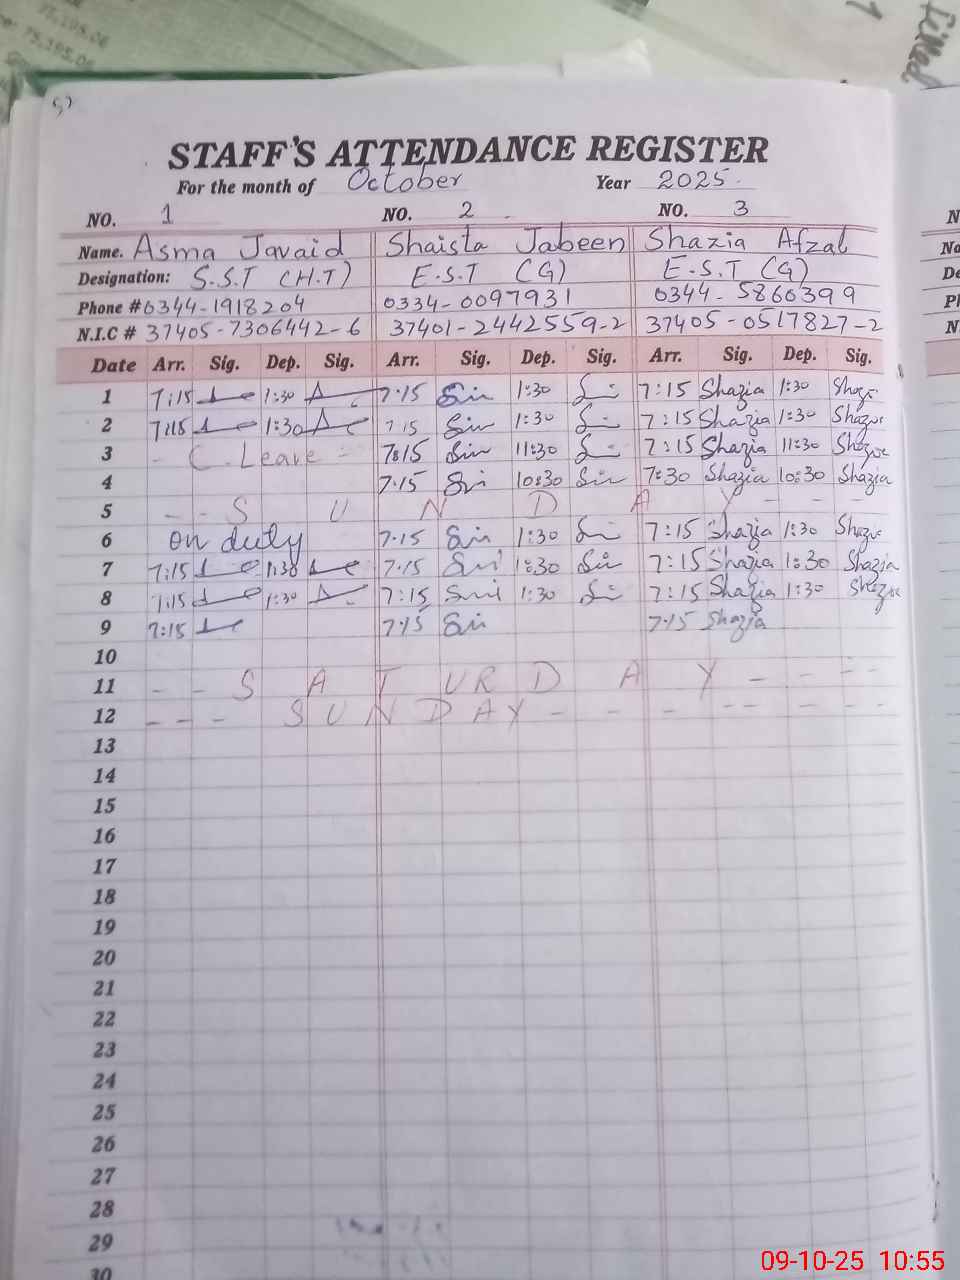 75,195.06
75,195.06
57
STAFF'S ATTENDANCE REGISTER
For the month of October Year 2025.
NO. 1 NO. 2 NO. 3
Name. Asma Javaid Shaista Jabeen Shazia Afzal
Designation: S.S.T (H.T) E.S.T (G) E.S.T (G)
Phone # 0344-1918204 0334-0097931 0344-5860399
N.I.C # 37405-7306442-6 37401-2442559-2 37405-0517827-2
Date Arr. Sig. Dep. Sig. Arr. Sig. Dep. Sig. Arr. Sig. Dep. Sig.
1 7:15 1:30 7:15 1:30 7:15 Shazia 1:30
2 7:15 1:30 7:15 1:30 7:15 Shazia 1:30
3 C. Leave 7:15 11:30 7:15 Shazia 11:30
4 7:15 10:30 7:30 Shazia 10:30 Shazia
5 - - S U N D A Y - - -
6 on duty 7:15 1:30 7:15 Shazia 1:30
7 7:15 1:30 7:15 1:30 7:15 Shazia 1:30 Shazia
8 7:15 1:30 7:15 1:30 7:15 Shazia 1:30
9 7:15 7:15 7:15 Shazia
10
11 - - S A T U R D A Y - - - -
12 - - - S U N D A Y - - - - - - - -
13
14
15
16
17
18
19
20
21
22
23
24
25
26
27
28
29
30
09-10-25 10:55